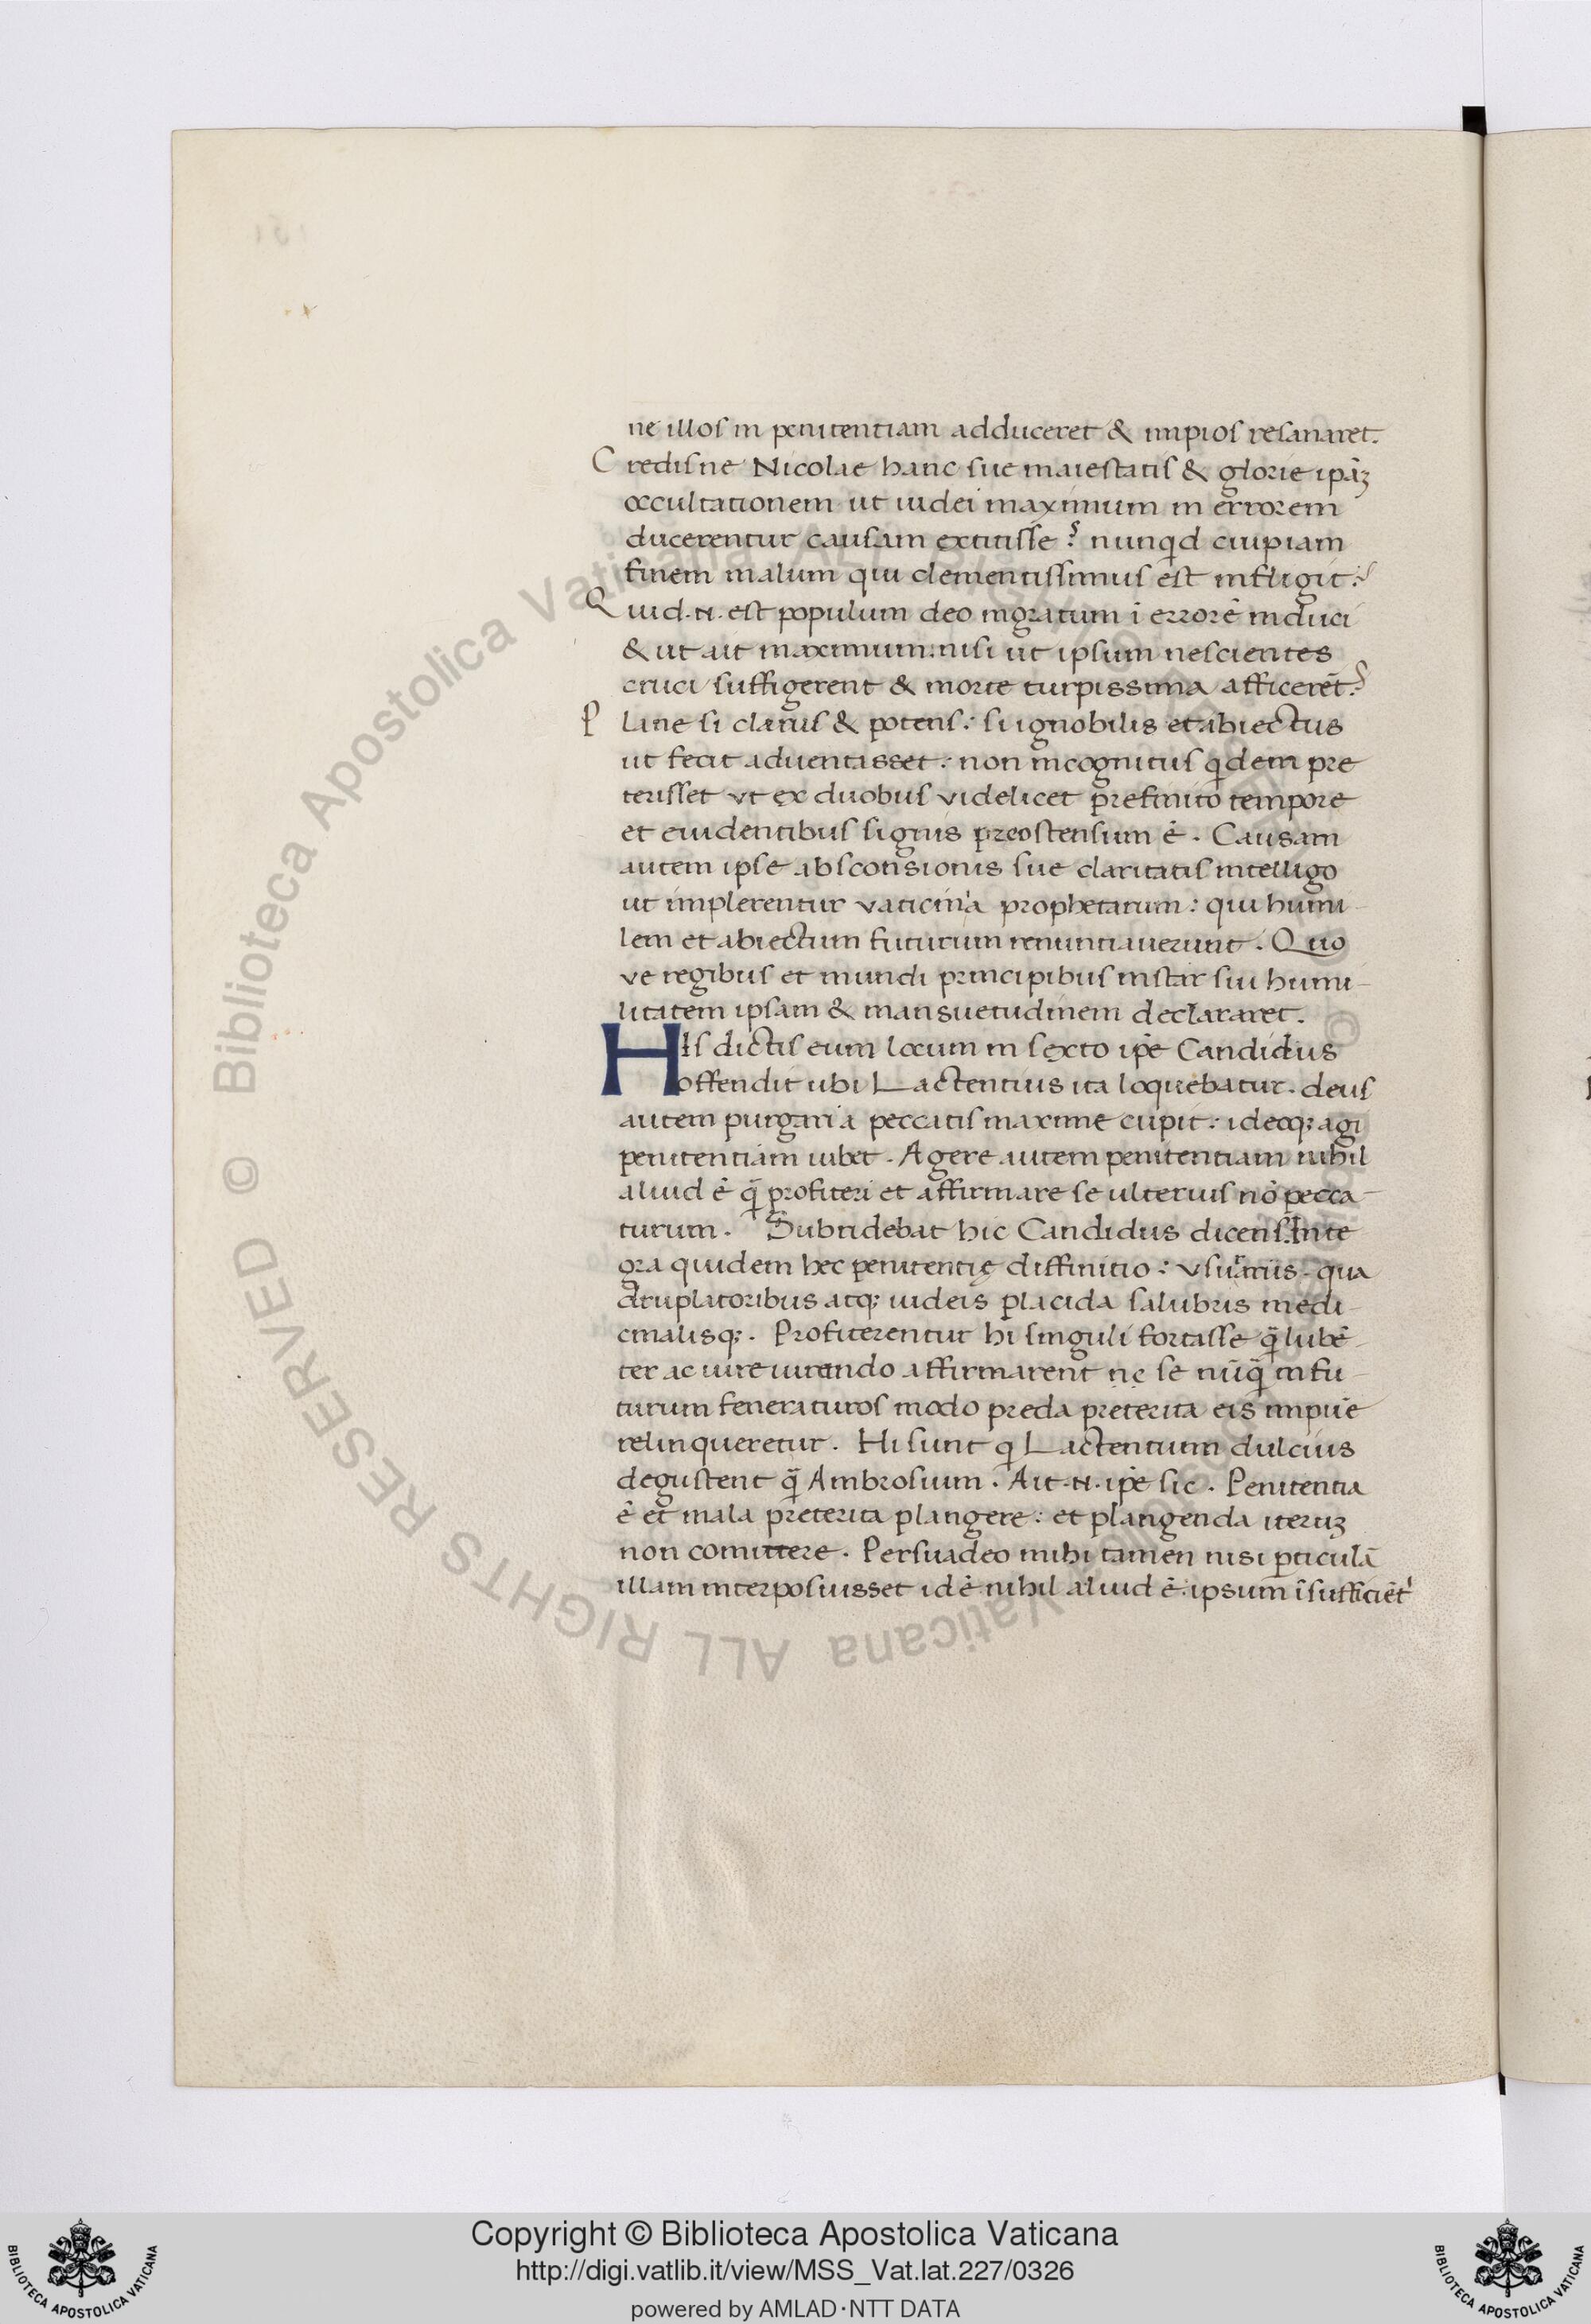 ne illos in penitentiam adduceret & impios resanaret.
Credisne Nicolae hanc sue maiestatis & glorie ipāꝫ
occultationem ut iudei maximum in errorem
ducerentur causam extitisse? nunqͥd cuipiam
finem malum qui clementissimus est infligit?
Quid .n. est populum deo ingratum ī errorē induci
& ut ait maximum: nisi ut ipsum nescientes
cruci suffigerent & morte turpissima afficerēt?
Plane si clarus & potens: si ignobilis et abiectus
ut fecit aduentasset: non incognitus qͥdem pre
terisset ut ex duobus videlicet prefinito tempore
et euidentibus signis preostensum ē. Causam
autem ipse absconsionis sue claritatis intelligo
ut implerentur vaticinia prophetarum: qui humi-
lem et abiectum futurum renuntiauerunt. Quo
ve regibus et mundi principibus instar sui humi-
litatem ipsam & mansuetudinem declararet.
His dictis eum locum in sexto ip̄e Candidus
offendit ubi Lactentius ita loquebatur. deus
autem purgari a peccatis maxime cupit: ideoqꝫ agi
penitentiam iubet. Agere autem penitentiam nihil
aliud ē qᷓ profiteri et affirmare se ulterius nō pecca-
turum. Subridebat hic Candidus dicens. Inte
gra quidem hec penitentię diffinitio: vsurariis. qua
druplatoribus atqꝫ iudeis placida salubris medi-
cinalisqꝫ. Profiterentur hi singuli fortasse qᷓ lubē-
ter ac iure iurando affirmarent ne se nūqᷓ in fu-
turum feneraturos modo preda preterita eis impūe
relinqueretur. Hi sunt qͥ Lactentium dulcius
degustent qᷓ Ambrosium. Ait .n. ip̄e sic. Penitentia
ē et mala preterita plangere: et plangenda iteruꝫ
non comittere. Persuadeo mihi tamen nisi ꝑticulā
illam interposuisset id ē nihil aliud ē. ipsum īsufficiēt'
Copyright © Biblioteca Apostolica Vaticana
http://digi.vatlib.it/view/MSS_Vat.lat.227/0326
powered by AMLAD·NTT DATA
BIBLIOTECA APOSTOLICA VATICANA
BIBLIOTECA APOSTOLICA VATICANA
© Biblioteca Apostolica Vaticana ALL RIGHTS RESERVED